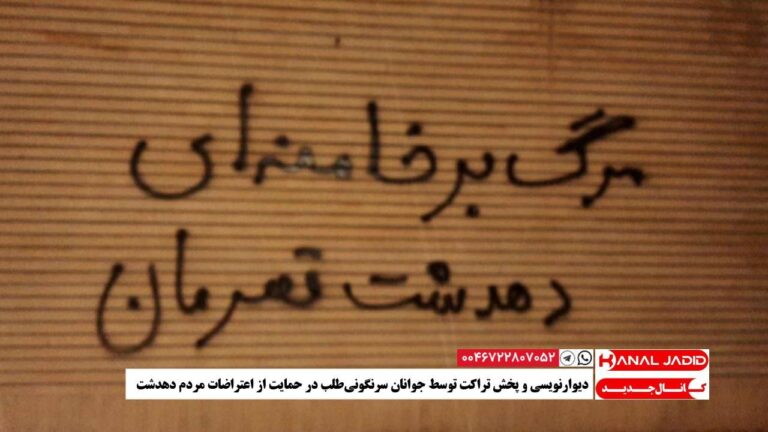 مرگ بر خامنه‌ای
دهدشت قهرمان
۰۰۴۶۷۲۲۸۰۷۰۵۲
KANAL JADID
کانال جدید
دیوارنویسی و پخش تراکت توسط جوانان سرنگونی‌طلب در حمایت از اعتراضات مردم دهدشت